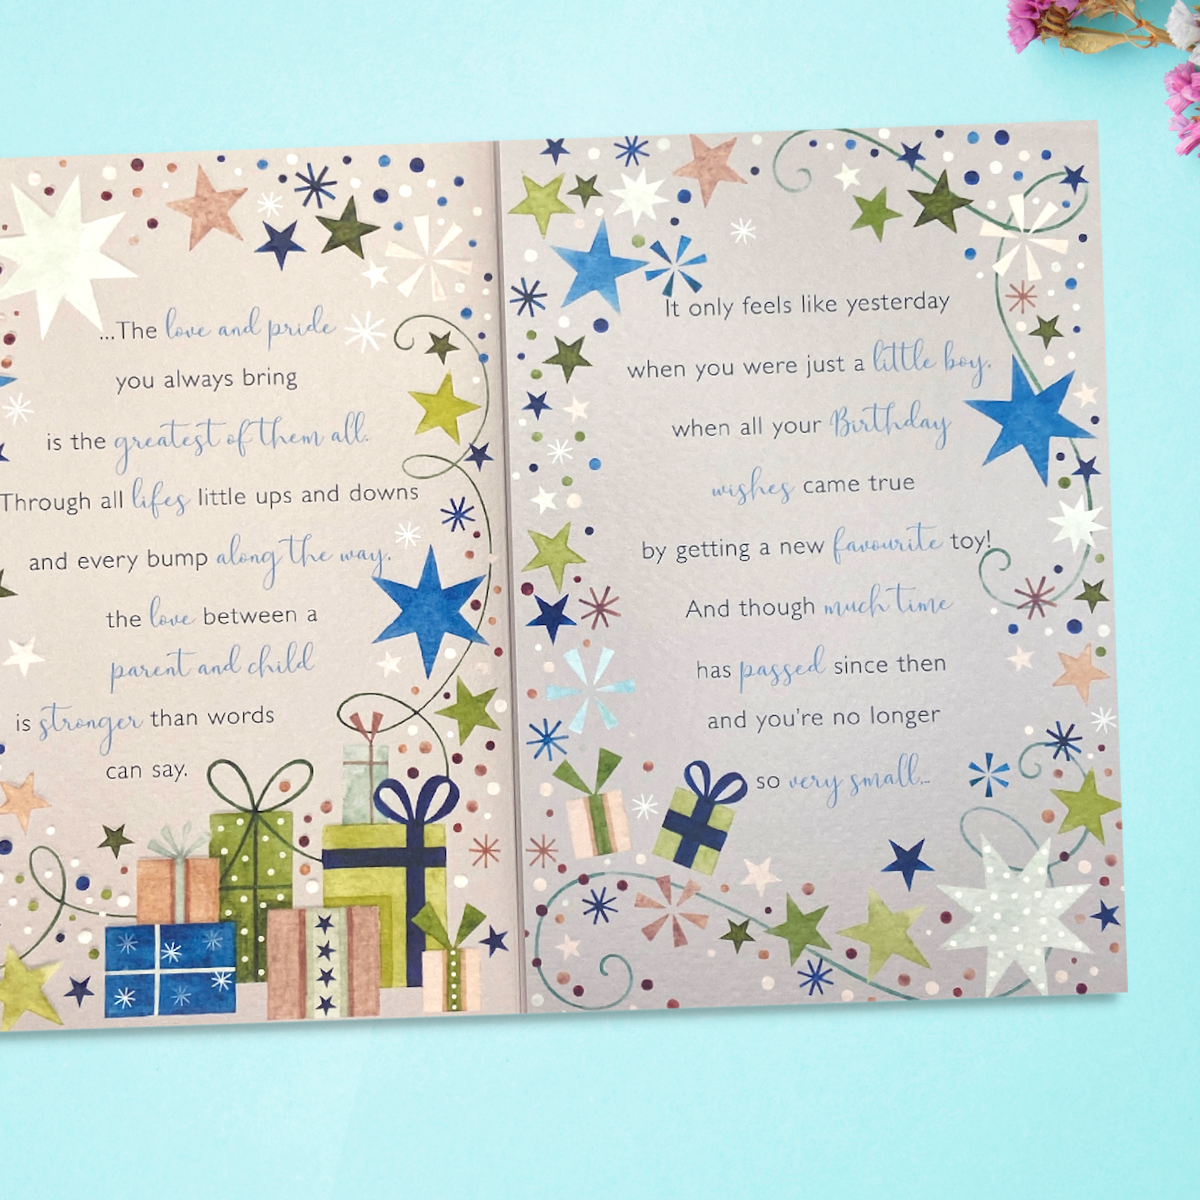 ...The love and pride
you always bring
is the greatest of them all.
Through all lifes little ups and downs
and every bump along the way.
the love between a
parent and child
is stronger than words
can say.
It only feels like yesterday
when you were just a little boy.
when all your Birthday
wishes came true
by getting a new favourite toy!
And though much time
has passed since then
and you're no longer
so very small...